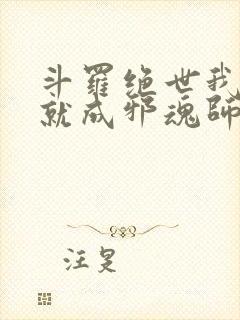 斗羅绝世我
就成邪魂師
汪旻